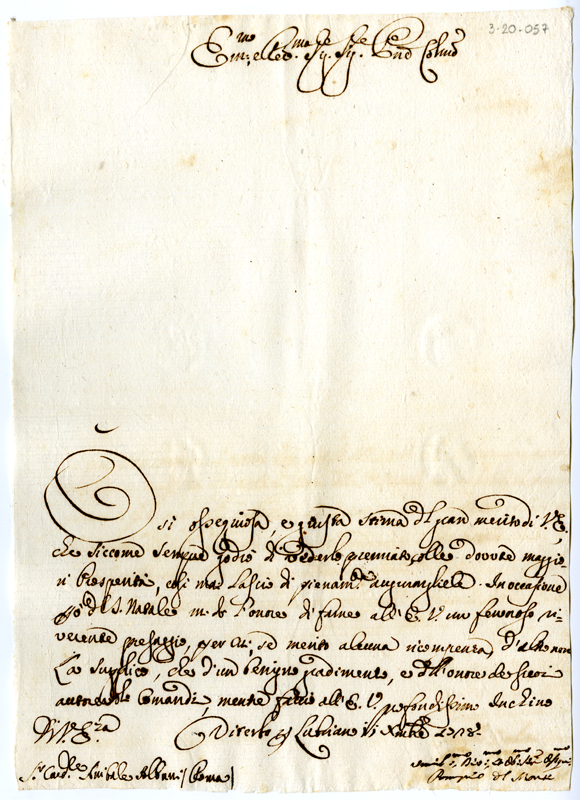 3-20-057
Em.mo e Rev.mo Sig. Sig. e Pñe Colmo
È si ossequiosa, e giusta stima del gran merito di V. E.
che siccome sempre godrò di vederlo premiato colle dovute maggio-
ri prosperità, così mai lascio di pienam.te augurargliele. In occasione
del S. Natale m. do l'onore di farne all' E. V. un fervoroso ri-
verente presaggio, per cui, se merito alcuna ricompenza, d'altro non
La supplico, che d'un benigno gradimento, e dell'onore de suoi
autorevoli Comandi, mentre faccio all' E. V. profondissimo Inchino
Di V. Em.za
Lubriano
Xmbre 1718.
Sr. Card.le Annibale Albani (Roma)
Pompeo del Monte